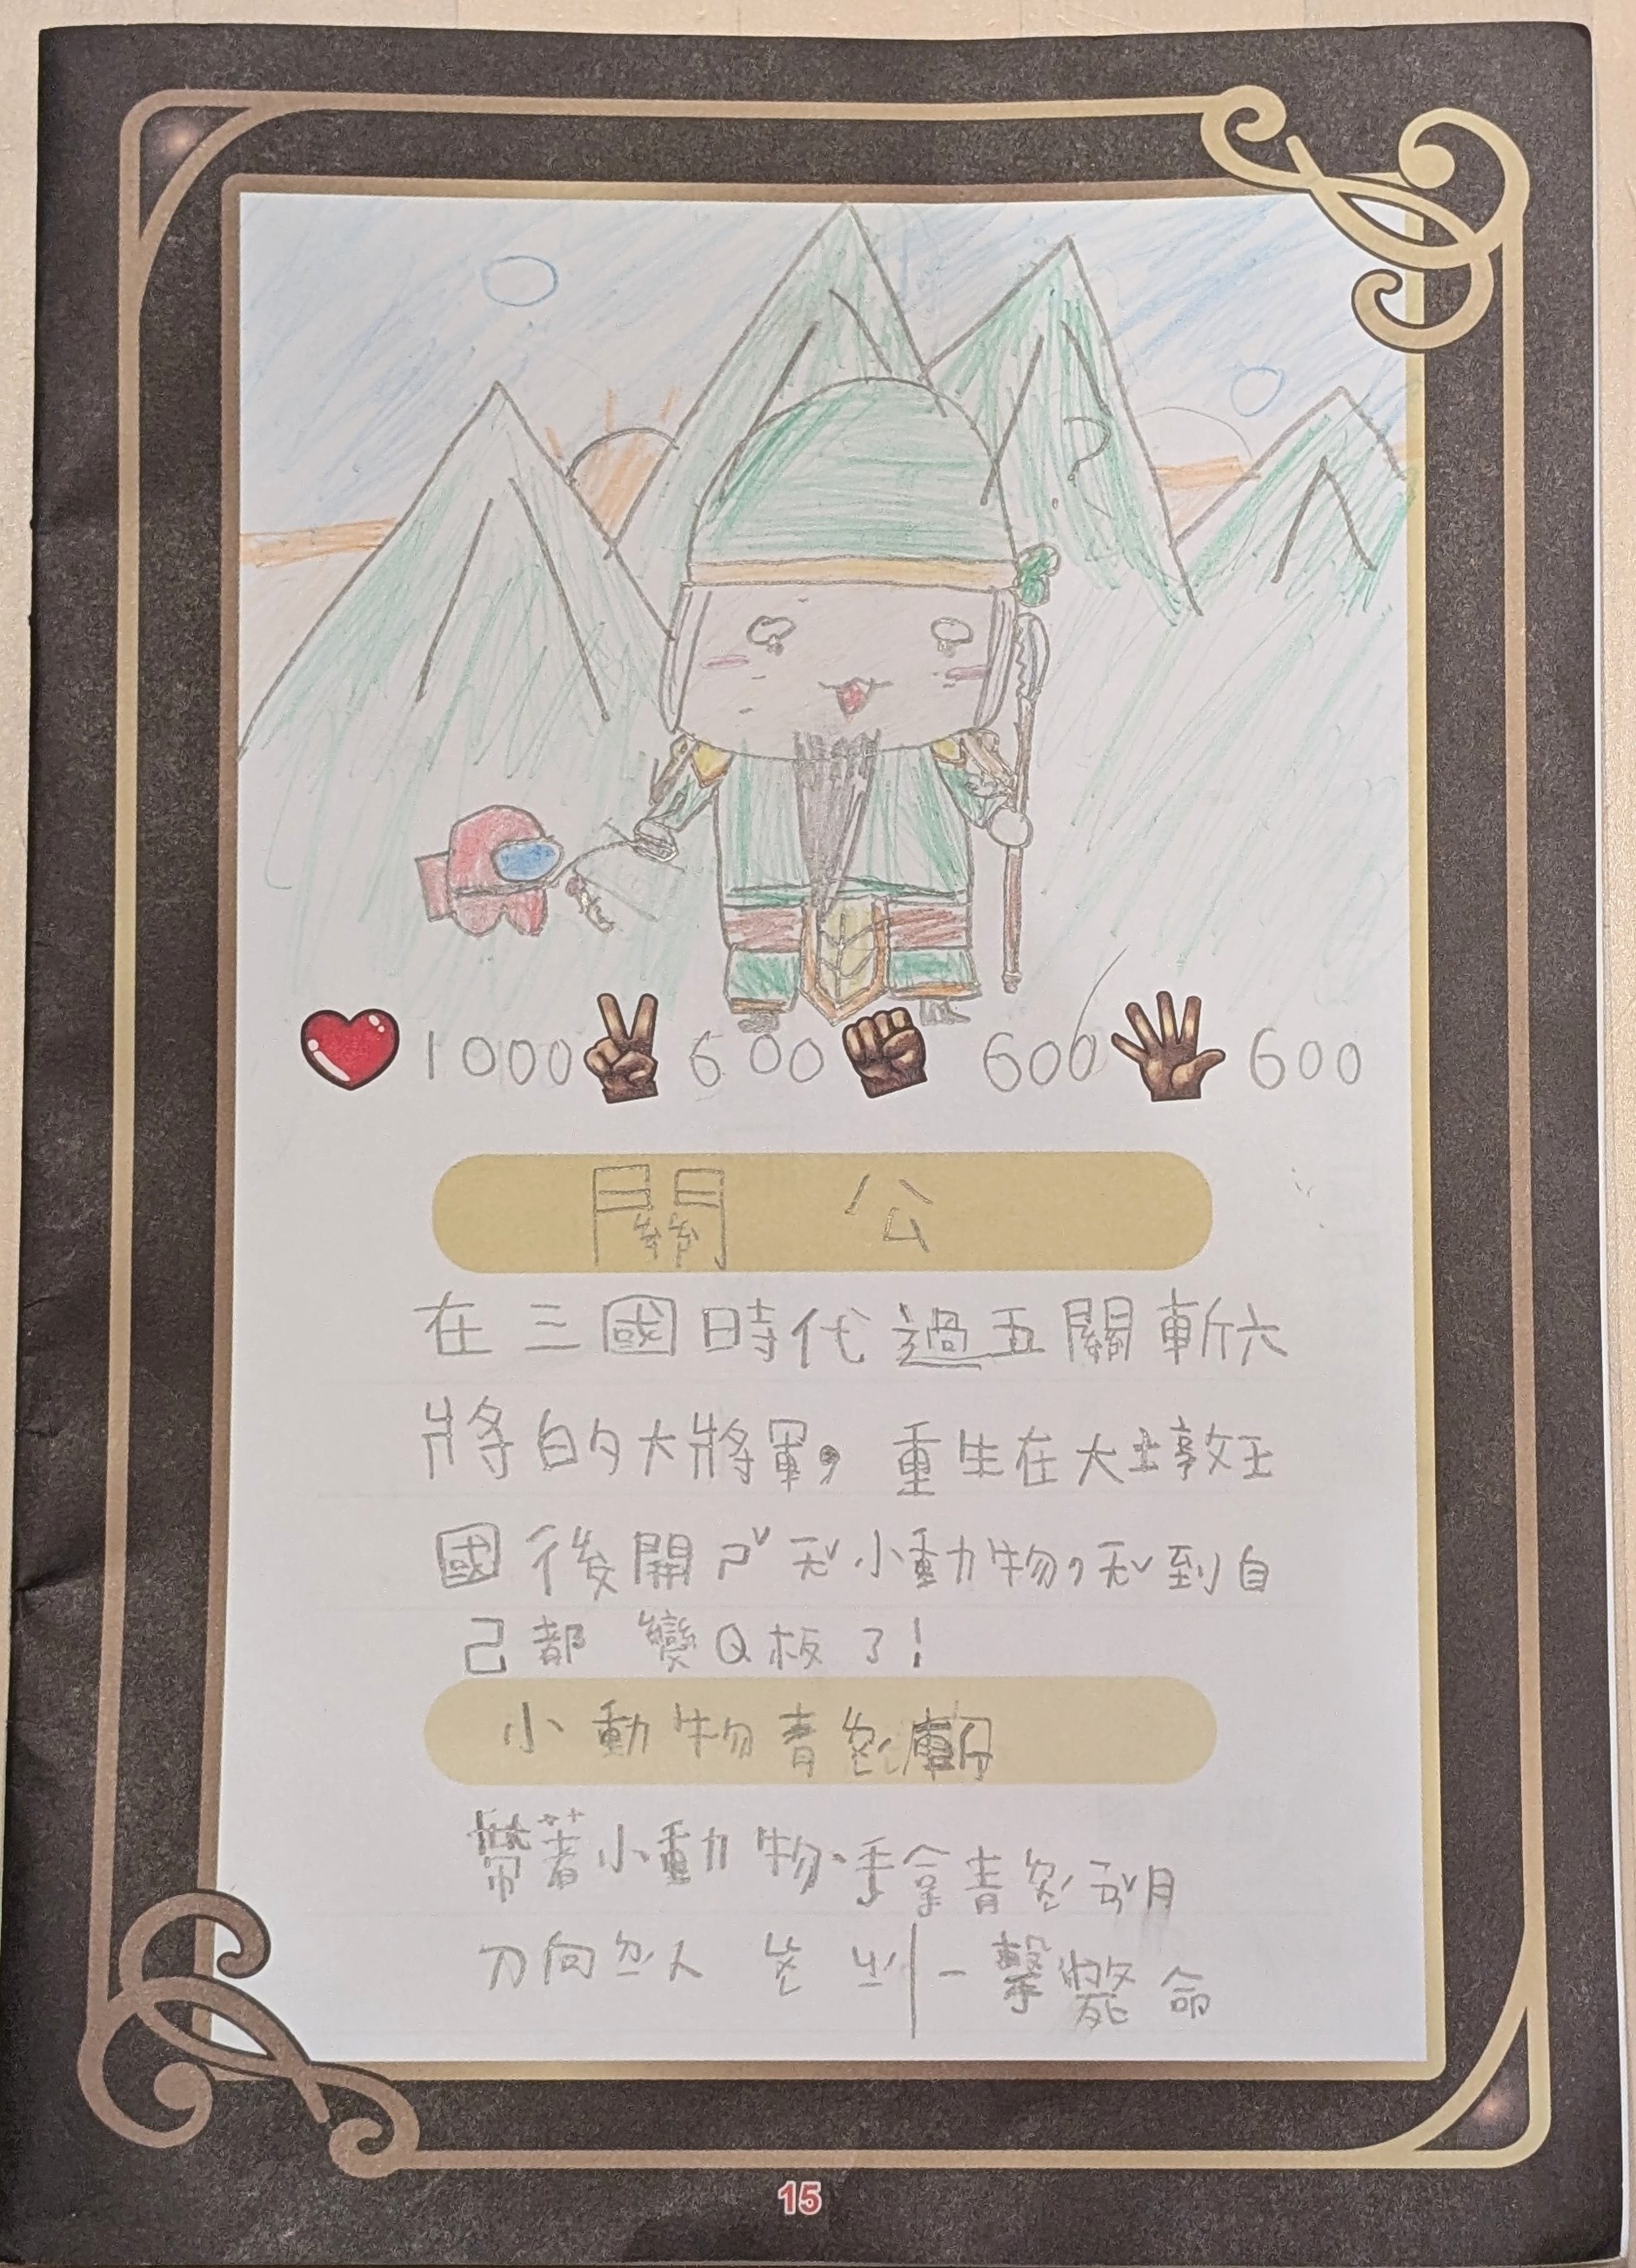 1000 600 600 600
關 公
在三國時代過五關斬六
將的大將軍,重生在大墩王
國後開ㄕˇㄞˋ小動物,ㄞˋ到自
己都 變Q板了!
小動物青
帶著小動物、手拿青 月
刀向 人 一擊斃命
15